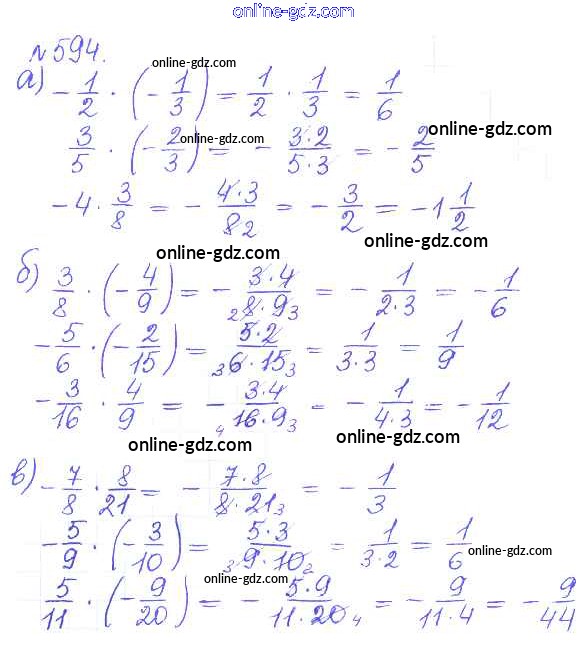 online-gdz.com
№594.
online-gdz.com
а) -1/2 · (-1/3) = 1/2 · 1/3 = 1/6
online-gdz.com
online-gdz.com
3/5 · (-2/3) = -3·2/5·3 = -2/5
-4 · 3/8 = -4·3/8 2 = -3/2 = -1 1/2
online-gdz.com
online-gdz.com
б) 3/8 · (-4/9) = -3·4/2 8·9 3 = -1/2·3 = -1/6
-5/6 · (-2/15) = 5·2/3 6·15 3 = 1/3·3 = 1/9
-3/16 · 4/9 = -3·4/4 16·9 3 = -1/4·3 = -1/12
online-gdz.com
online-gdz.com
в) -7/8 · 8/21 = -7·8/8·21 3 = -1/3
-5/9 · (-3/10) = 5·3/3 9·10 2 = 1/3·2 = 1/6
online-gdz.com
online-gdz.com
5/11 · (-9/20) = -5·9/11·20 4 = -9/11·4 = -9/44
online-gdz.com